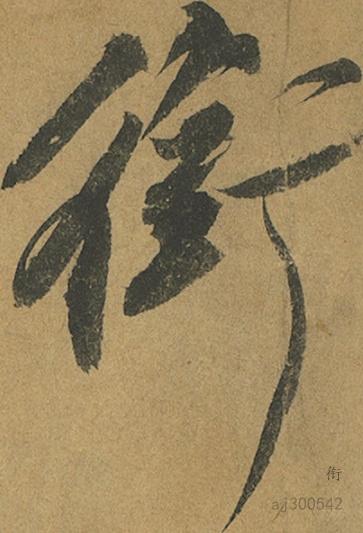 衔
衔
aj300542